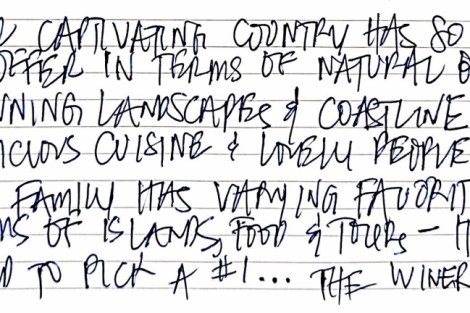 R CAPTIVATING COUNTRY HAS SO
OFFER IN TERMS OF NATURAL B
NNING LANDSCAPES & COASTLINE
ICIOUS CUISINE & LOVELY PEOPLE
FAMILY HAS VARYING FAVORIT
MS OF ISLANDS, FOOD & TOURS – IT
D TO PICK A #1... THE WINER